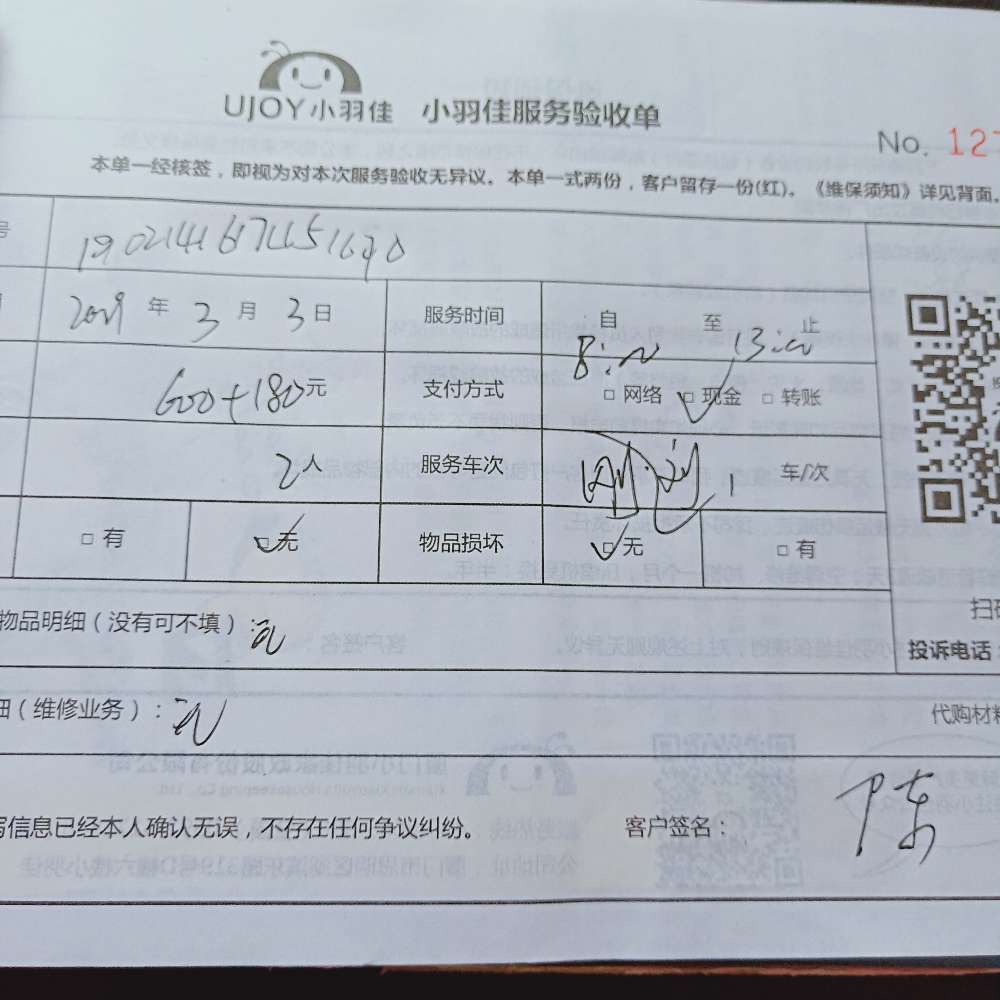 UJOY小羽佳 小羽佳服务验收单
No. 12
本单一经核签，即视为对本次服务验收无异议。本单一式两份，客户留存一份(红)。《维保须知》详见背面。
号
年 3 月 3 日 服务时间 自 8:00 至 13:00 止
600+180元 支付方式 □ 网络 □ 现金 □ 转账
2人 服务车次 1 车/次
□ 有 □ 无 物品损坏 □ 无 □ 有
物品明细（没有可不填）：无
扫
投诉电话：
细（维修业务）：无
代购材料
写信息已经本人确认无误，不存在任何争议纠纷。
客户签名： 陈